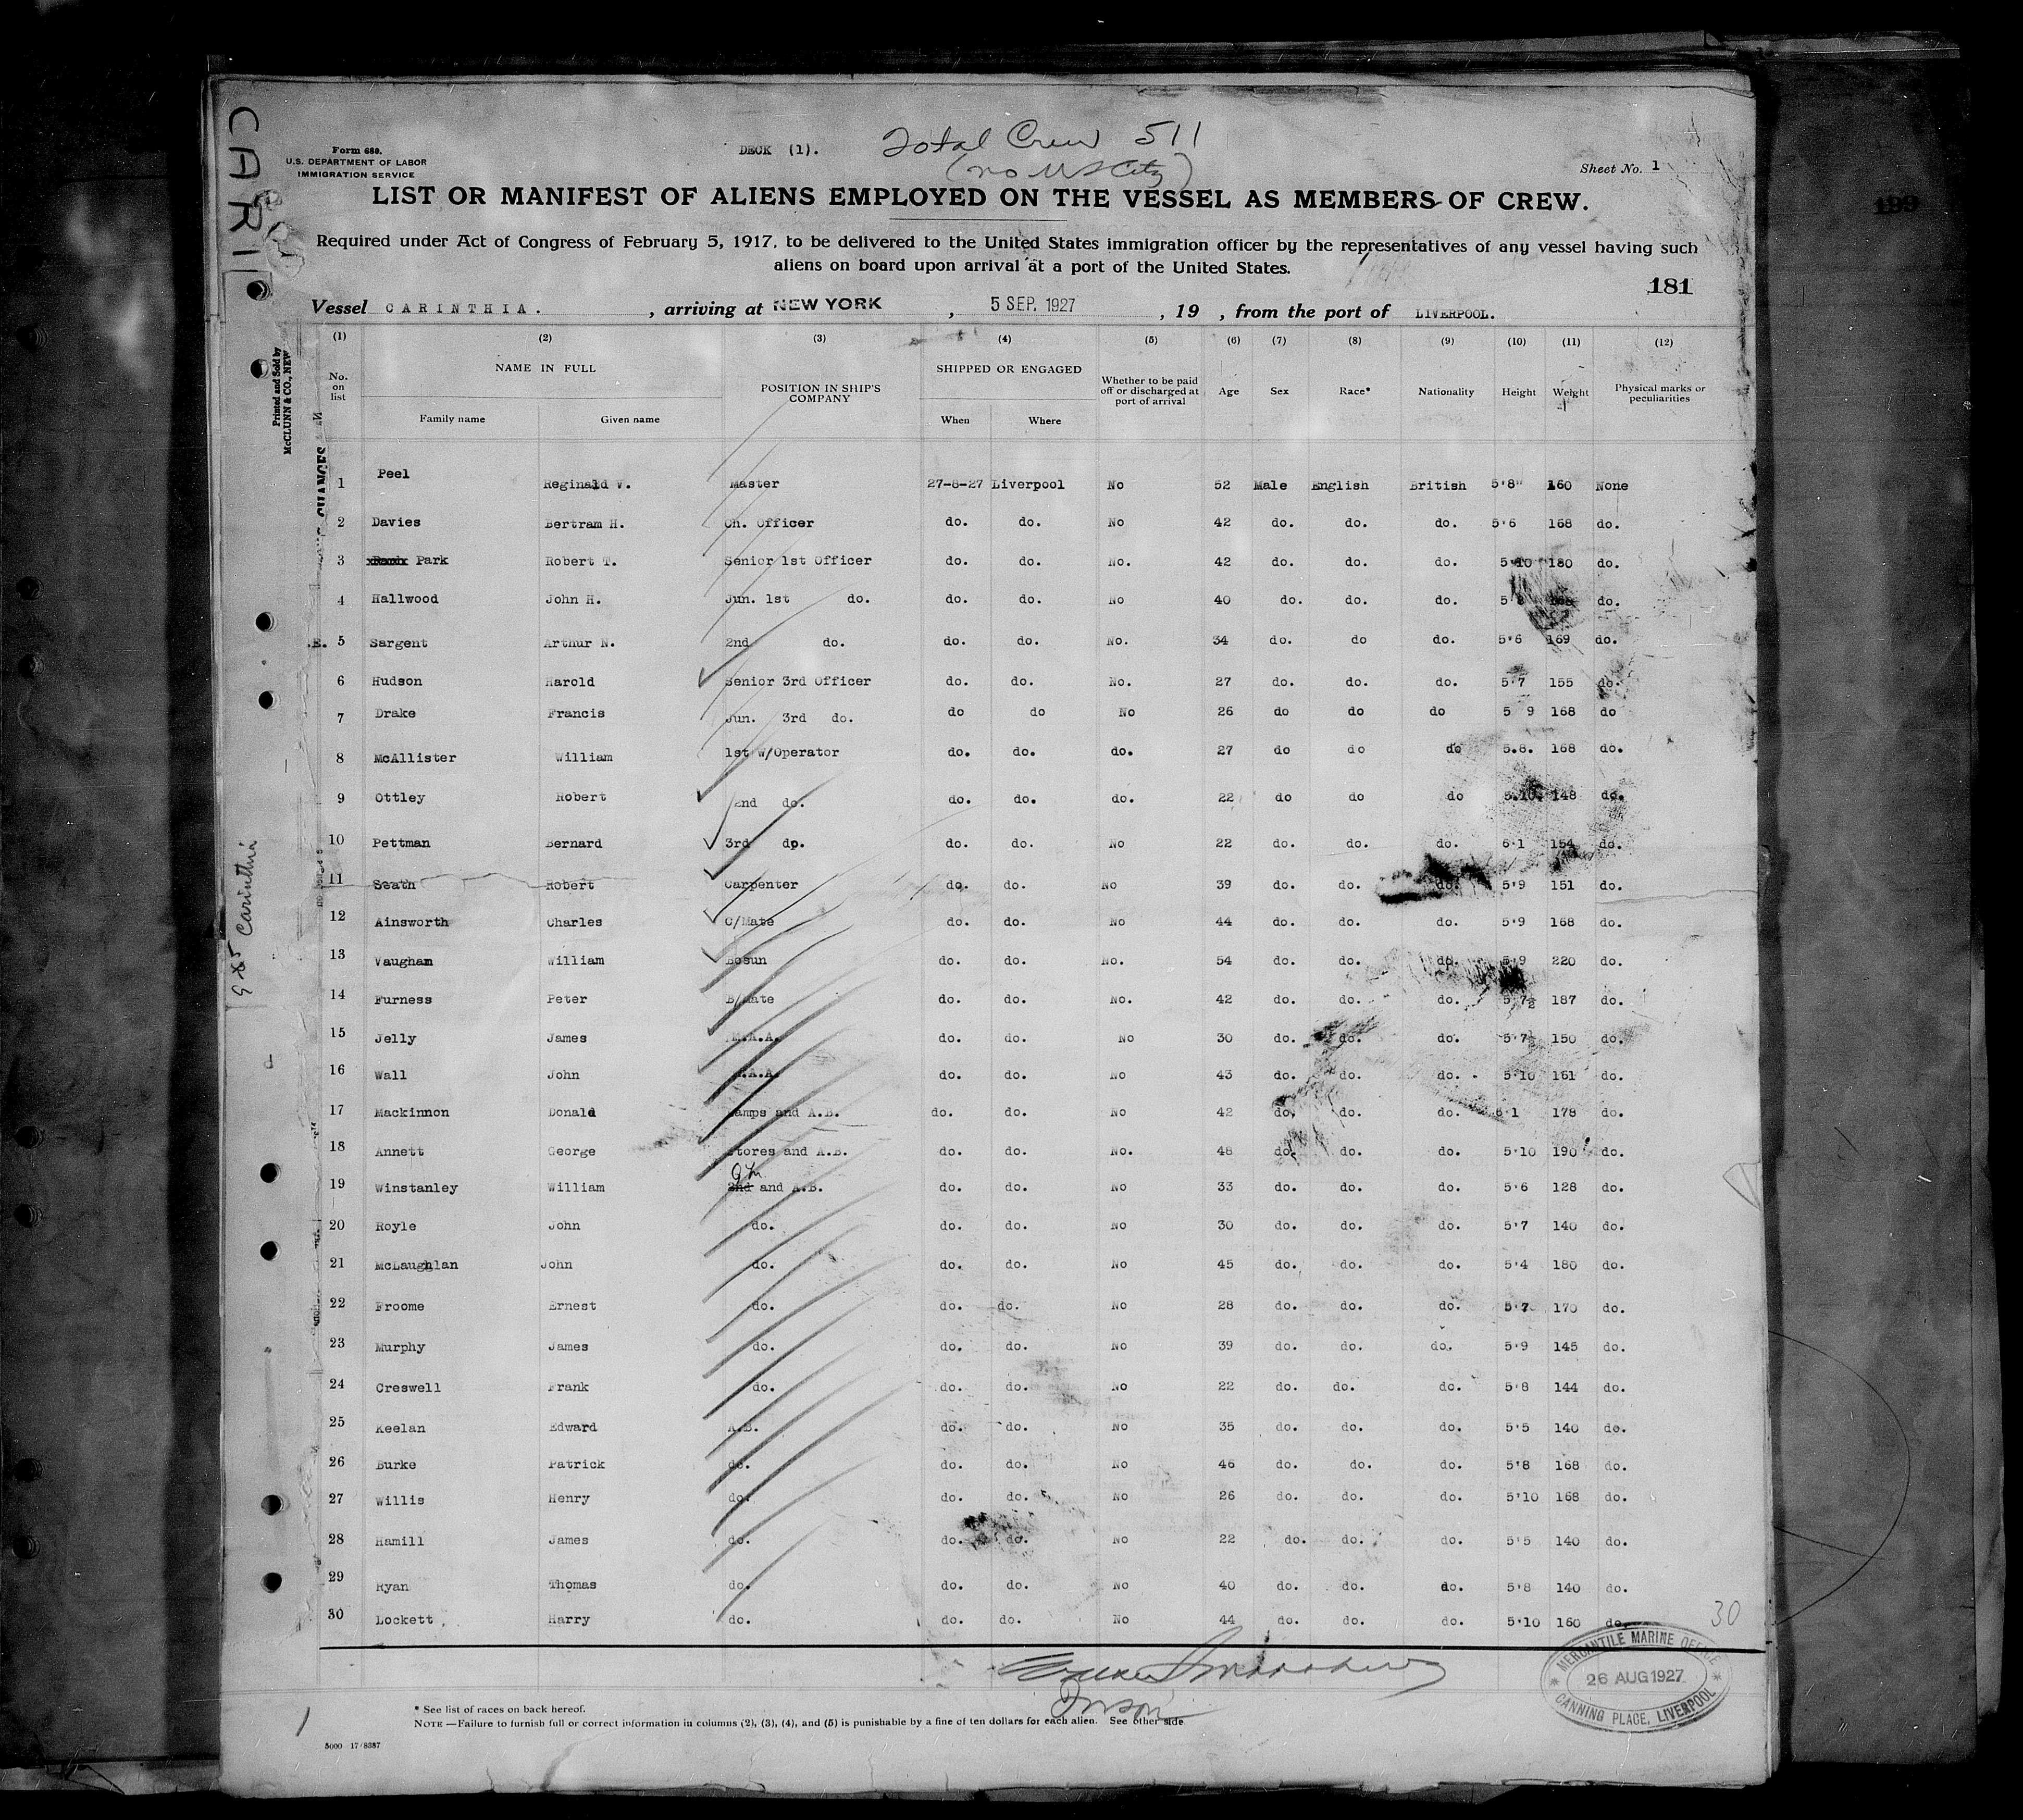 CARI
Form 680.
U.S. DEPARTMENT OF LABOR
IMMIGRATION SERVICE
DECK (1).
Total Crew 511
(no US City)
Sheet No. 1
LIST OR MANIFEST OF ALIENS EMPLOYED ON THE VESSEL AS MEMBERS OF CREW.
Required under Act of Congress of February 5, 1917, to be delivered to the United States immigration officer by the representatives of any vessel having such
aliens on board upon arrival at a port of the United States.
199
181
Vessel CARINTHIA. , arriving at NEW YORK , 5 SEP. 1927 , 19 , from the port of LIVERPOOL.
Printed and Sold by
McCLUNN & CO., NEW
(1) (2) (3) (4) (5) (6) (7) (8) (9) (10) (11) (12)
No. on list NAME IN FULL Family name Given name POSITION IN SHIP'S COMPANY SHIPPED OR ENGAGED When Where Whether to be paid off or discharged at port of arrival Age Sex Race* Nationality Height Weight Physical marks or peculiarities
1 Peel Reginald V. Master 27-8-27 Liverpool No 52 Male English British 5'8" 160 None
2 Davies Bertram H. Ch. Officer do. do. No 42 do. do. do. 5'6 168 do.
3 Park Robert T. Senior 1st Officer do. do. No. 42 do. do. do. 5'10 180 do.
4 Hallwood John H. Jun. 1st do. do. do. No 40 do. do. do. do.
5 Sargent Arthur N. 2nd do. do. do. No. 34 do. do do. 5'6 169 do.
6 Hudson Harold Senior 3rd Officer do. do. No. 27 do. do. do. 5'7 155 do.
7 Drake Francis Jun. 3rd do. do do No 26 do do do 5 9 168 do
8 McAllister William 1st W/Operator do. do. do. 27 do do do 5.8. 168 do.
9 Ottley Robert 2nd do. do. do. do. 22 do do do 5.10. 148 do.
10 Pettman Bernard 3rd do. do. do. No 22 do. do. do. 6'1 154 do.
11 Seath Robert Carpenter do. do. No 39 do. do. do. 5'9 151 do.
12 Ainsworth Charles C/Mate do. do. No 44 do. do. do. 5'9 168 do.
13 Vaughan William Bosun do. do. No. 54 do. do. do. 5'9 220 do.
14 Furness Peter B/Mate do. do. No. 42 do. do. do. 5'7½ 187 do.
15 Jelly James M.A.A. do. do. No 30 do. do. do. 5'7½ 150 do.
16 Wall John M.A.A. do. do. No 43 do. do. do. 5'10 161 do.
17 Mackinnon Donald Lamps and A.B. do. do. No 42 do. do. do. 6'1 178 do.
18 Annett George Stores and A.B. do. do. No. 48 do. do. do. 5'10 190 do.
19 Winstanley William 2nd and A.B. do. do. No 33 do. do. do. 5'6 128 do.
20 Royle John do. do. do. No 30 do. do. do. 5'7 140 do.
21 McLaughlan John do. do. do. No 45 do. do. do. 5'4 180 do.
22 Froome Ernest do. do. do. No 28 do. do. do. 5'7 170 do.
23 Murphy James do. do. do. No 39 do. do. do. 5'9 145 do.
24 Creswell Frank do. do. do. No 22 do. do. do. 5'8 144 do.
25 Keelan Edward A.B. do. do. No 35 do. do. do. 5'5 140 do.
26 Burke Patrick do. do. do. No 46 do. do. do. 5'8 168 do.
27 Willis Henry do. do. do. No 26 do. do. do. 5'10 168 do.
28 Hamill James do. do. do. No 22 do. do. do. 5'5 140 do.
29 Ryan Thomas do. do. do. No 40 do. do. do. 5'8 140 do.
30 Lockett Harry do. do. do. No 44 do. do. do. 5'10 160 do.
30
Carinthia
MERCANTILE MARINE OFFICE
26 AUG 1927
CANNING PLACE, LIVERPOOL
* See list of races on back hereof.
NOTE—Failure to furnish full or correct information in columns (2), (3), (4), and (5) is punishable by a fine of ten dollars for each alien. See other side.
5000 17/8387
1